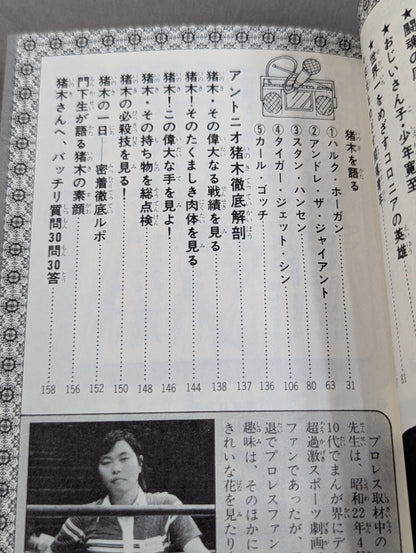 闘魂の
★おじいさん子 少年寛
★世界一をめざすコロニアの英雄
81
猪木を語る
①ハルク・ホーガン……31
②アンドレ・ザ・ジャイアント……63
③スタン・ハンセン……80
④タイガー・ジェット・シン……106
⑤カール・ゴッチ……136
アントニオ猪木徹底解剖……137
猪木・その偉大なる戦績を見る……138
猪木!そのたくましき肉体を見る……144
猪木!この偉大な手を見よ!……146
猪木・その持ち物を総点検……148
猪木の必殺技を見る!……150
猪木の一日──密着徹底ルポ……152
門下生が語る猪木の素顔……156
猪木さんへ、バッチリ質問30問30答……158
プロレス取材中の
先生は、昭和22年4
10代でまんが界にデ
超過激スポーツ劇画
ファンであったが、
退でプロレスファン
趣味は、そのほかに
きれいな花を見たり